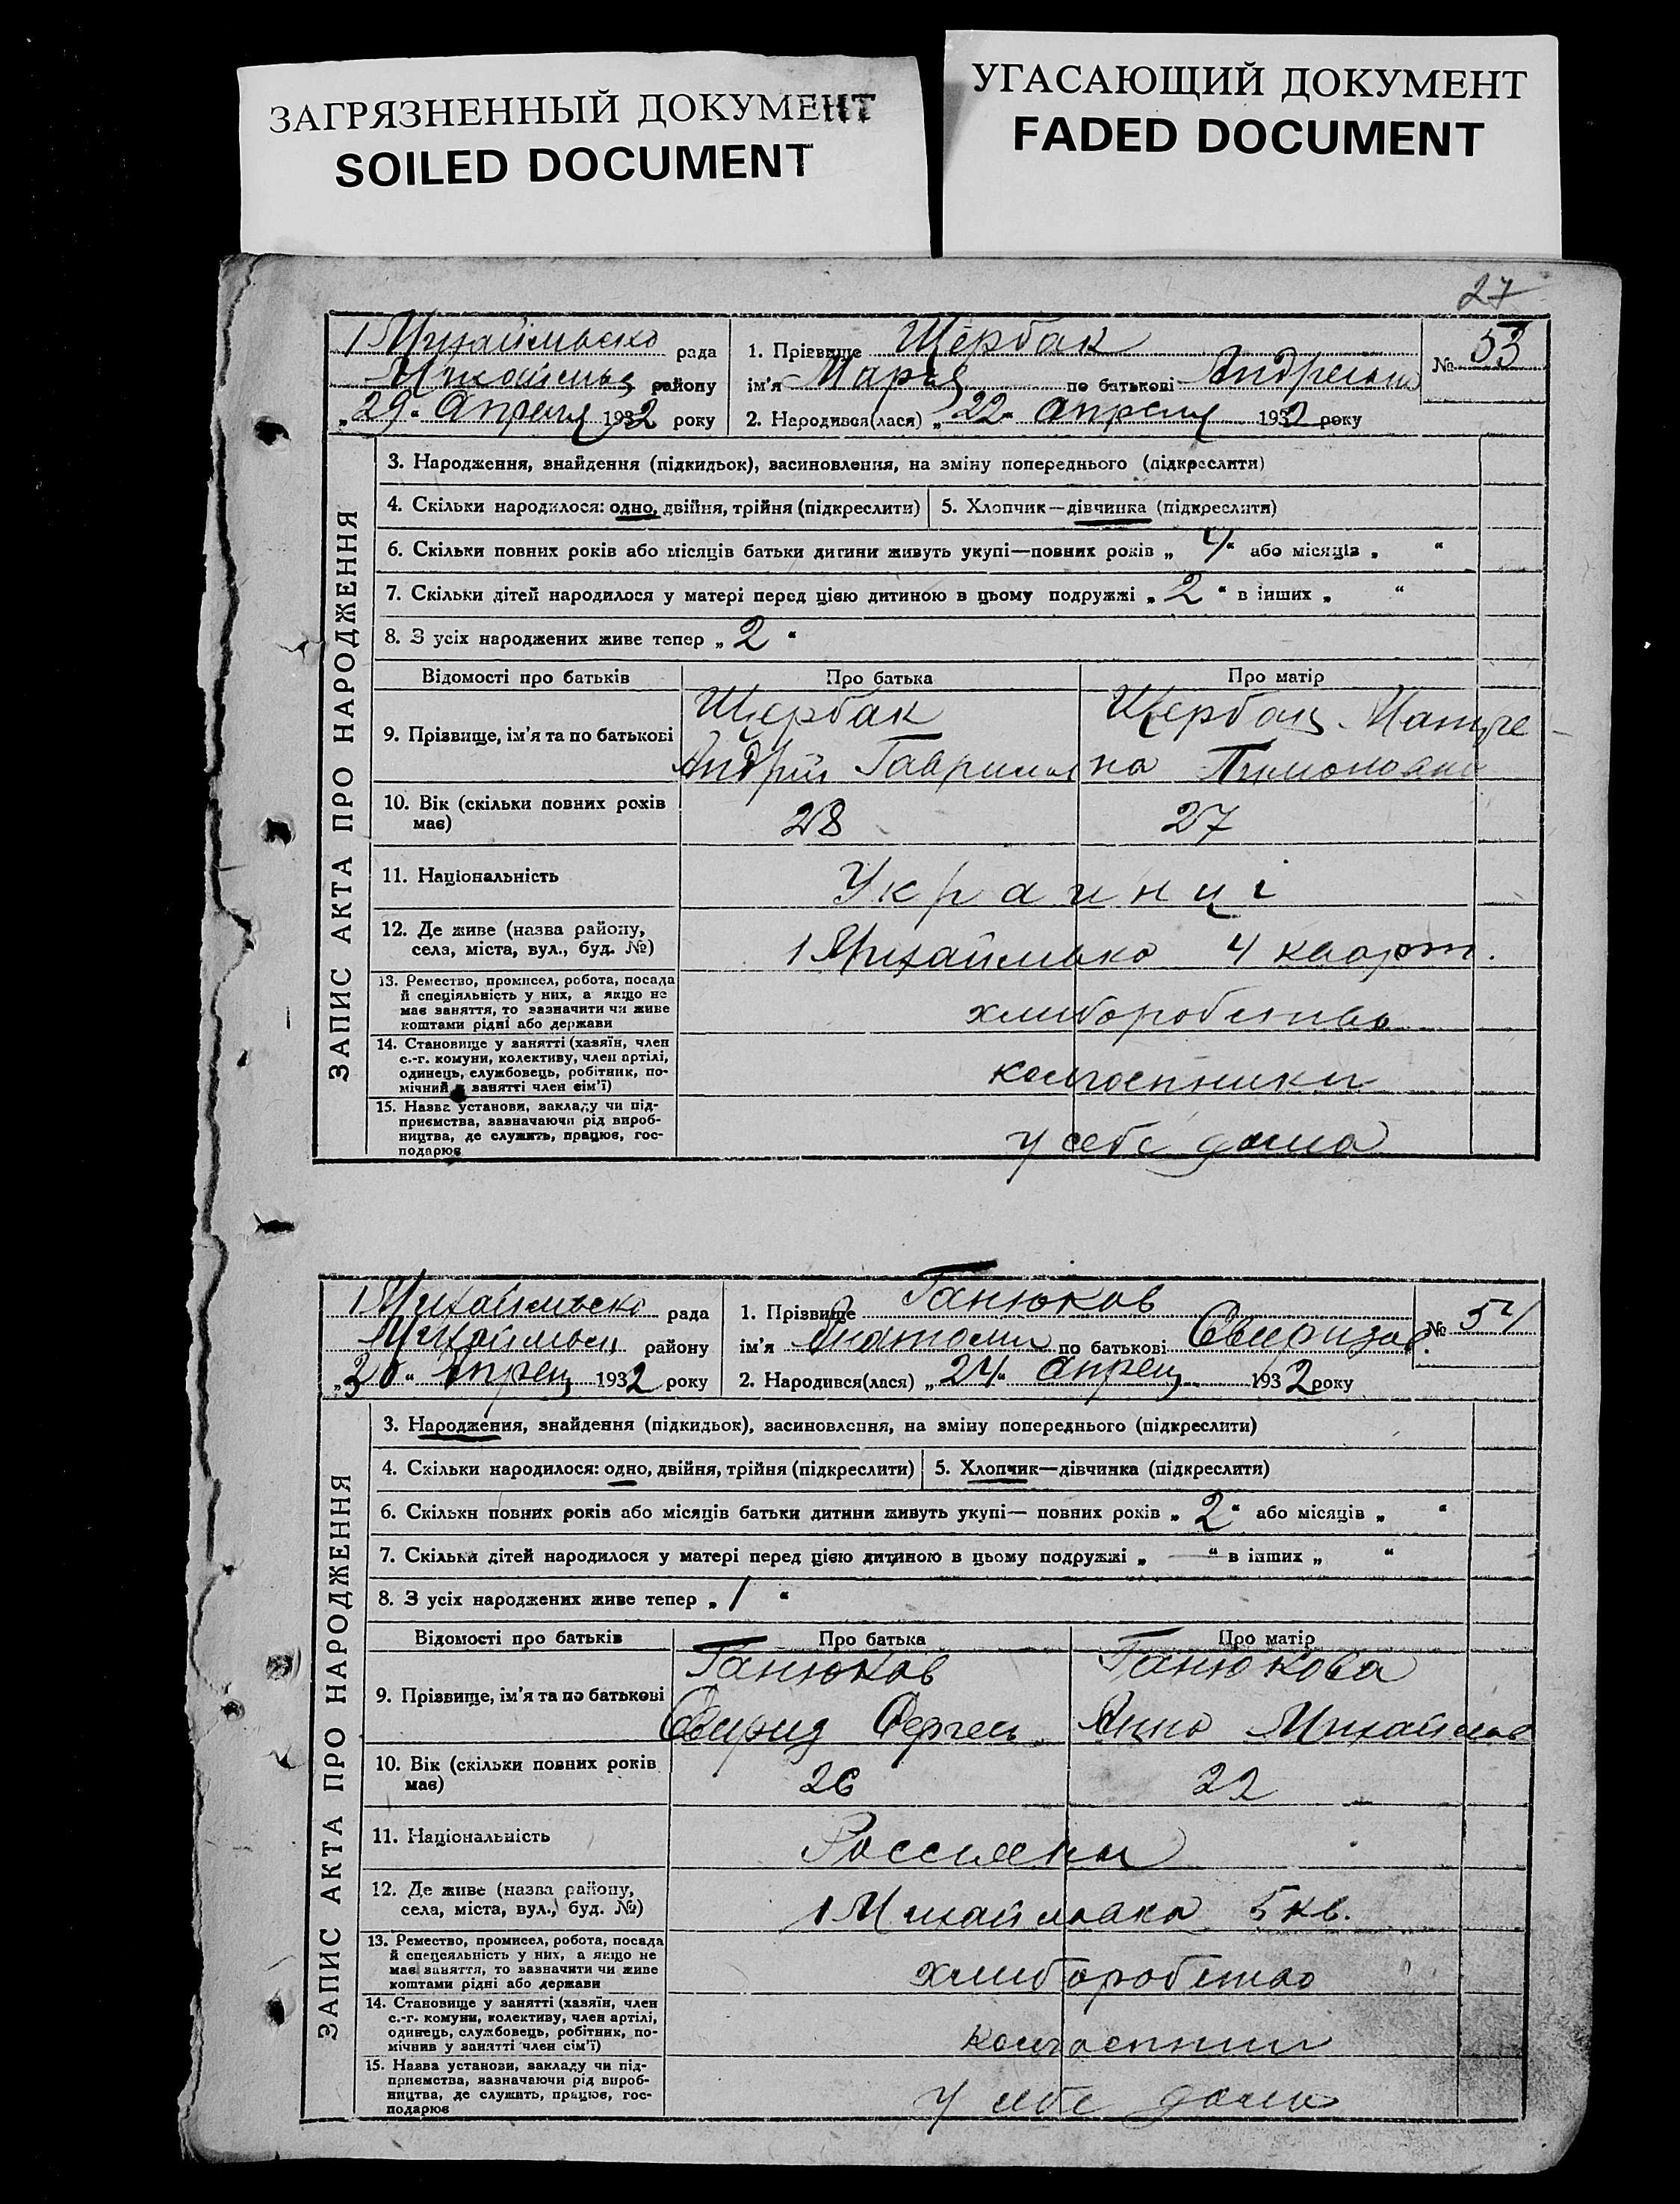 ЗАГРЯЗНЕННЫЙ ДОКУМЕНТ
SOILED DOCUMENT
УГАСАЮЩИЙ ДОКУМЕНТ
FADED DOCUMENT
27
рада
району
"29" Апреля 1932 року
1. Прізвище Щербак
ім'я Мария по батькові
2. Народився(лася) "22" апреля 1932 року
№ 53
ЗАПИС АКТА ПРО НАРОДЖЕННЯ
3. Народження, знайдення (підкидьок), васиновлення, на зміну попереднього (підкреслити)
4. Скільки народилося: одно, двійня, трійня (підкреслити)
5. Хлопчик—дівчинка (підкреслити)
6. Скільки повних років або місяців батьки дитини живуть укупі—повних років „ 4 “ або місяців „ “
7. Скільки дітей народилося у матері перед цією дитиною в цьому подружжі „ 2 “ в інших „ “
8. З усіх народжених живе тепер „ 2 “
Відомості про батьків Про батька Про матір
9. Прізвище, ім'я та по батькові
Щербак
Андрій
10. Вік (скільки повних років має) 28 27
11. Національність Украинці
12. Де живе (назва району, села, міста, вул., буд. №) 4 кварт.
13. Ремество, промисел, робота, посада
й спеціяльність у них, а якщо не
має заняття, то зазначити чи живе
коштами рідні або держави
хлиборобство
14. Становище у занятті (хазяїн, член
с.-г. комуни, колективу, член артілі,
одинець, службовець, робітник, по-
мічний у занятті член сім'ї)
15. Назва установи, закладу чи під-
приємства, зазначаючи рід вироб-
ництва, де служить, працює, гос-
подарює
у себе дома
рада
району
1932 року
1. Прізвище Ганюков
ім'я по батькові
2. Народився(лася) „24“ 1932 року
№ 54
ЗАПИС АКТА ПРО НАРОДЖЕННЯ
3. Народження, знайдення (підкидьок), васиновлення, на зміну попереднього (підкреслити)
4. Скільки народилося: одно, двійня, трійня (підкреслити)
5. Хлопчик—дівчинка (підкреслити)
6. Скільки повних років або місяців батьки дитини живуть укупі— повних років „ 2 “ або місяців „ “
7. Скільки дітей народилося у матері перед цією дитиною в цьому подружжі „ — “ в інших „ “
8. З усіх народжених живе тепер „ 1 “
Відомості про батьків Про батька Про матір
9. Прізвище, ім'я та по батькові
Ганюков Ганюкова
Свирид Анна
10. Вік (скільки повних років має) 26 22
11. Національність
12. Де живе (назва району, села, міста, вул., буд. №) 5 кв.
13. Ремество, промисел, робота, посада
й спецсяльність у них, а якщо не
має заняття, то зазначити чи живе
коштами рідні або держави
хлиборобство
14. Становище у занятті (хазяїн, член
с.-г. комуни, колективу, член артілі,
одинець, службовець, робітник, по-
мічнив у занятті член сім'ї)
15. Назва установи, закладу чи під-
приємства, зазначаючи рід вироб-
ництва, де служить, працює, гос-
подарює
у себе дома